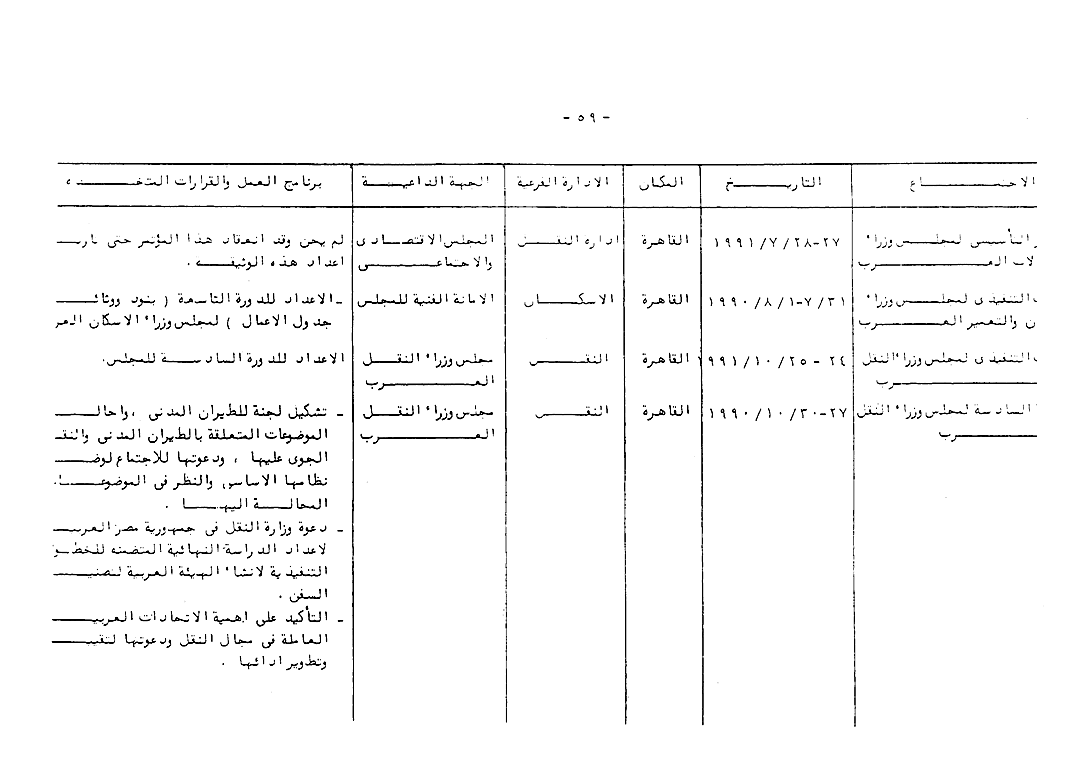 - ٥٩ -
الاجتماع التاريخ المكان الادارة الفرعية الجهة الداعية برنامج العمل والقرارات المتخذه
التأسيسى لمجلس وزراء ٢٧-٢٨/٧/١٩٩١ القاهرة ادارة النقل المجلس الاقتصادى لم يحن وقد انعقاد هذا المؤتمر حتى
العرب والاجتماعى اعداد هذه الوثيقه .
التنفيذى لمجلس وزراء ٧/٣١-٨/١/١٩٩٠ القاهرة الاسكان الامانة الفنية للمجلس - الاعداد للدورة التاسعة ( بنود
والتعمير العرب جدول الاعمال ) لمجلس وزراء الاسكان
التنفيذى لمجلس وزراء النقل ٢٤-٢٥/١٠/١٩٩١ القاهرة النقل مجلس وزراء النقل الاعداد للدورة السادسة للمجلس.
العرب
السادسة لمجلس وزراء النقل ٢٧-٣٠/١٠/١٩٩٠ القاهرة النقل مجلس وزراء النقل - تشكيل لجنة للطيران المدنى ،
العرب الموضوعات المتعلقة بالطيران المدنى
الجوى عليها ، ودعوتها للاجتماع
نظامها الاساسى والنظر فى
المحالة اليها .
- دعوة وزارة النقل فى جمهورية مصر
لاعداد الدراسة النهائية المتضمنه
التنفيذية لانشاء الهيئة العربية
السفن .
- التأكيد على اهمية الاتحادات
العاملة فى مجال النقل ودعوتها
وتطوير ادائها .